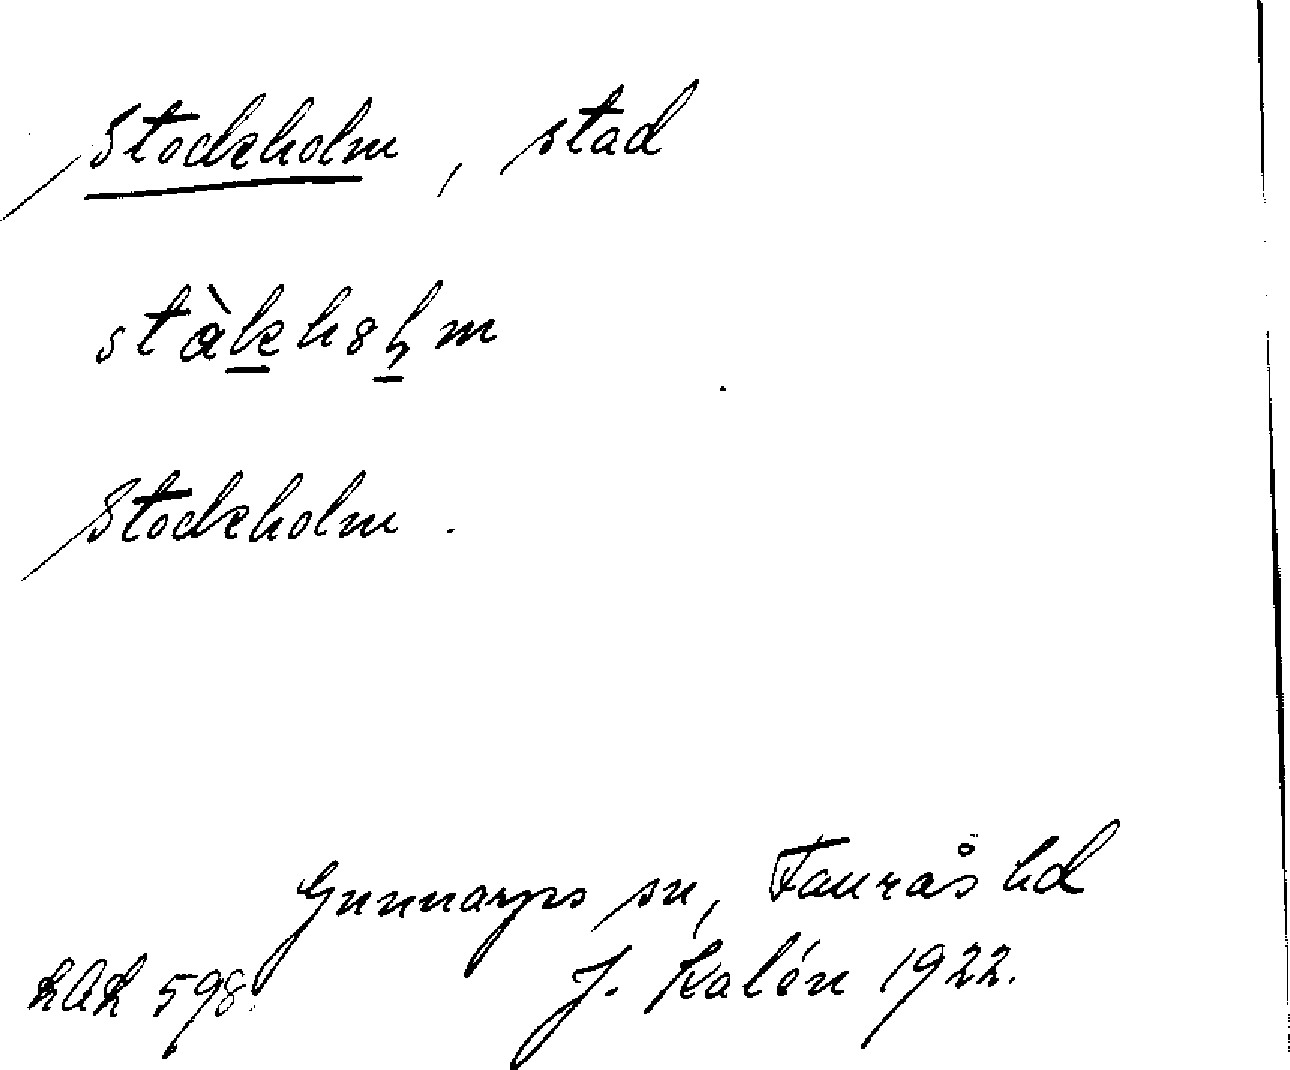 Stockholm, stad
stàkhølm
Stockholm.
Gunnarps sn, Faurås hd
LAL 598. J. Kalén 1922.